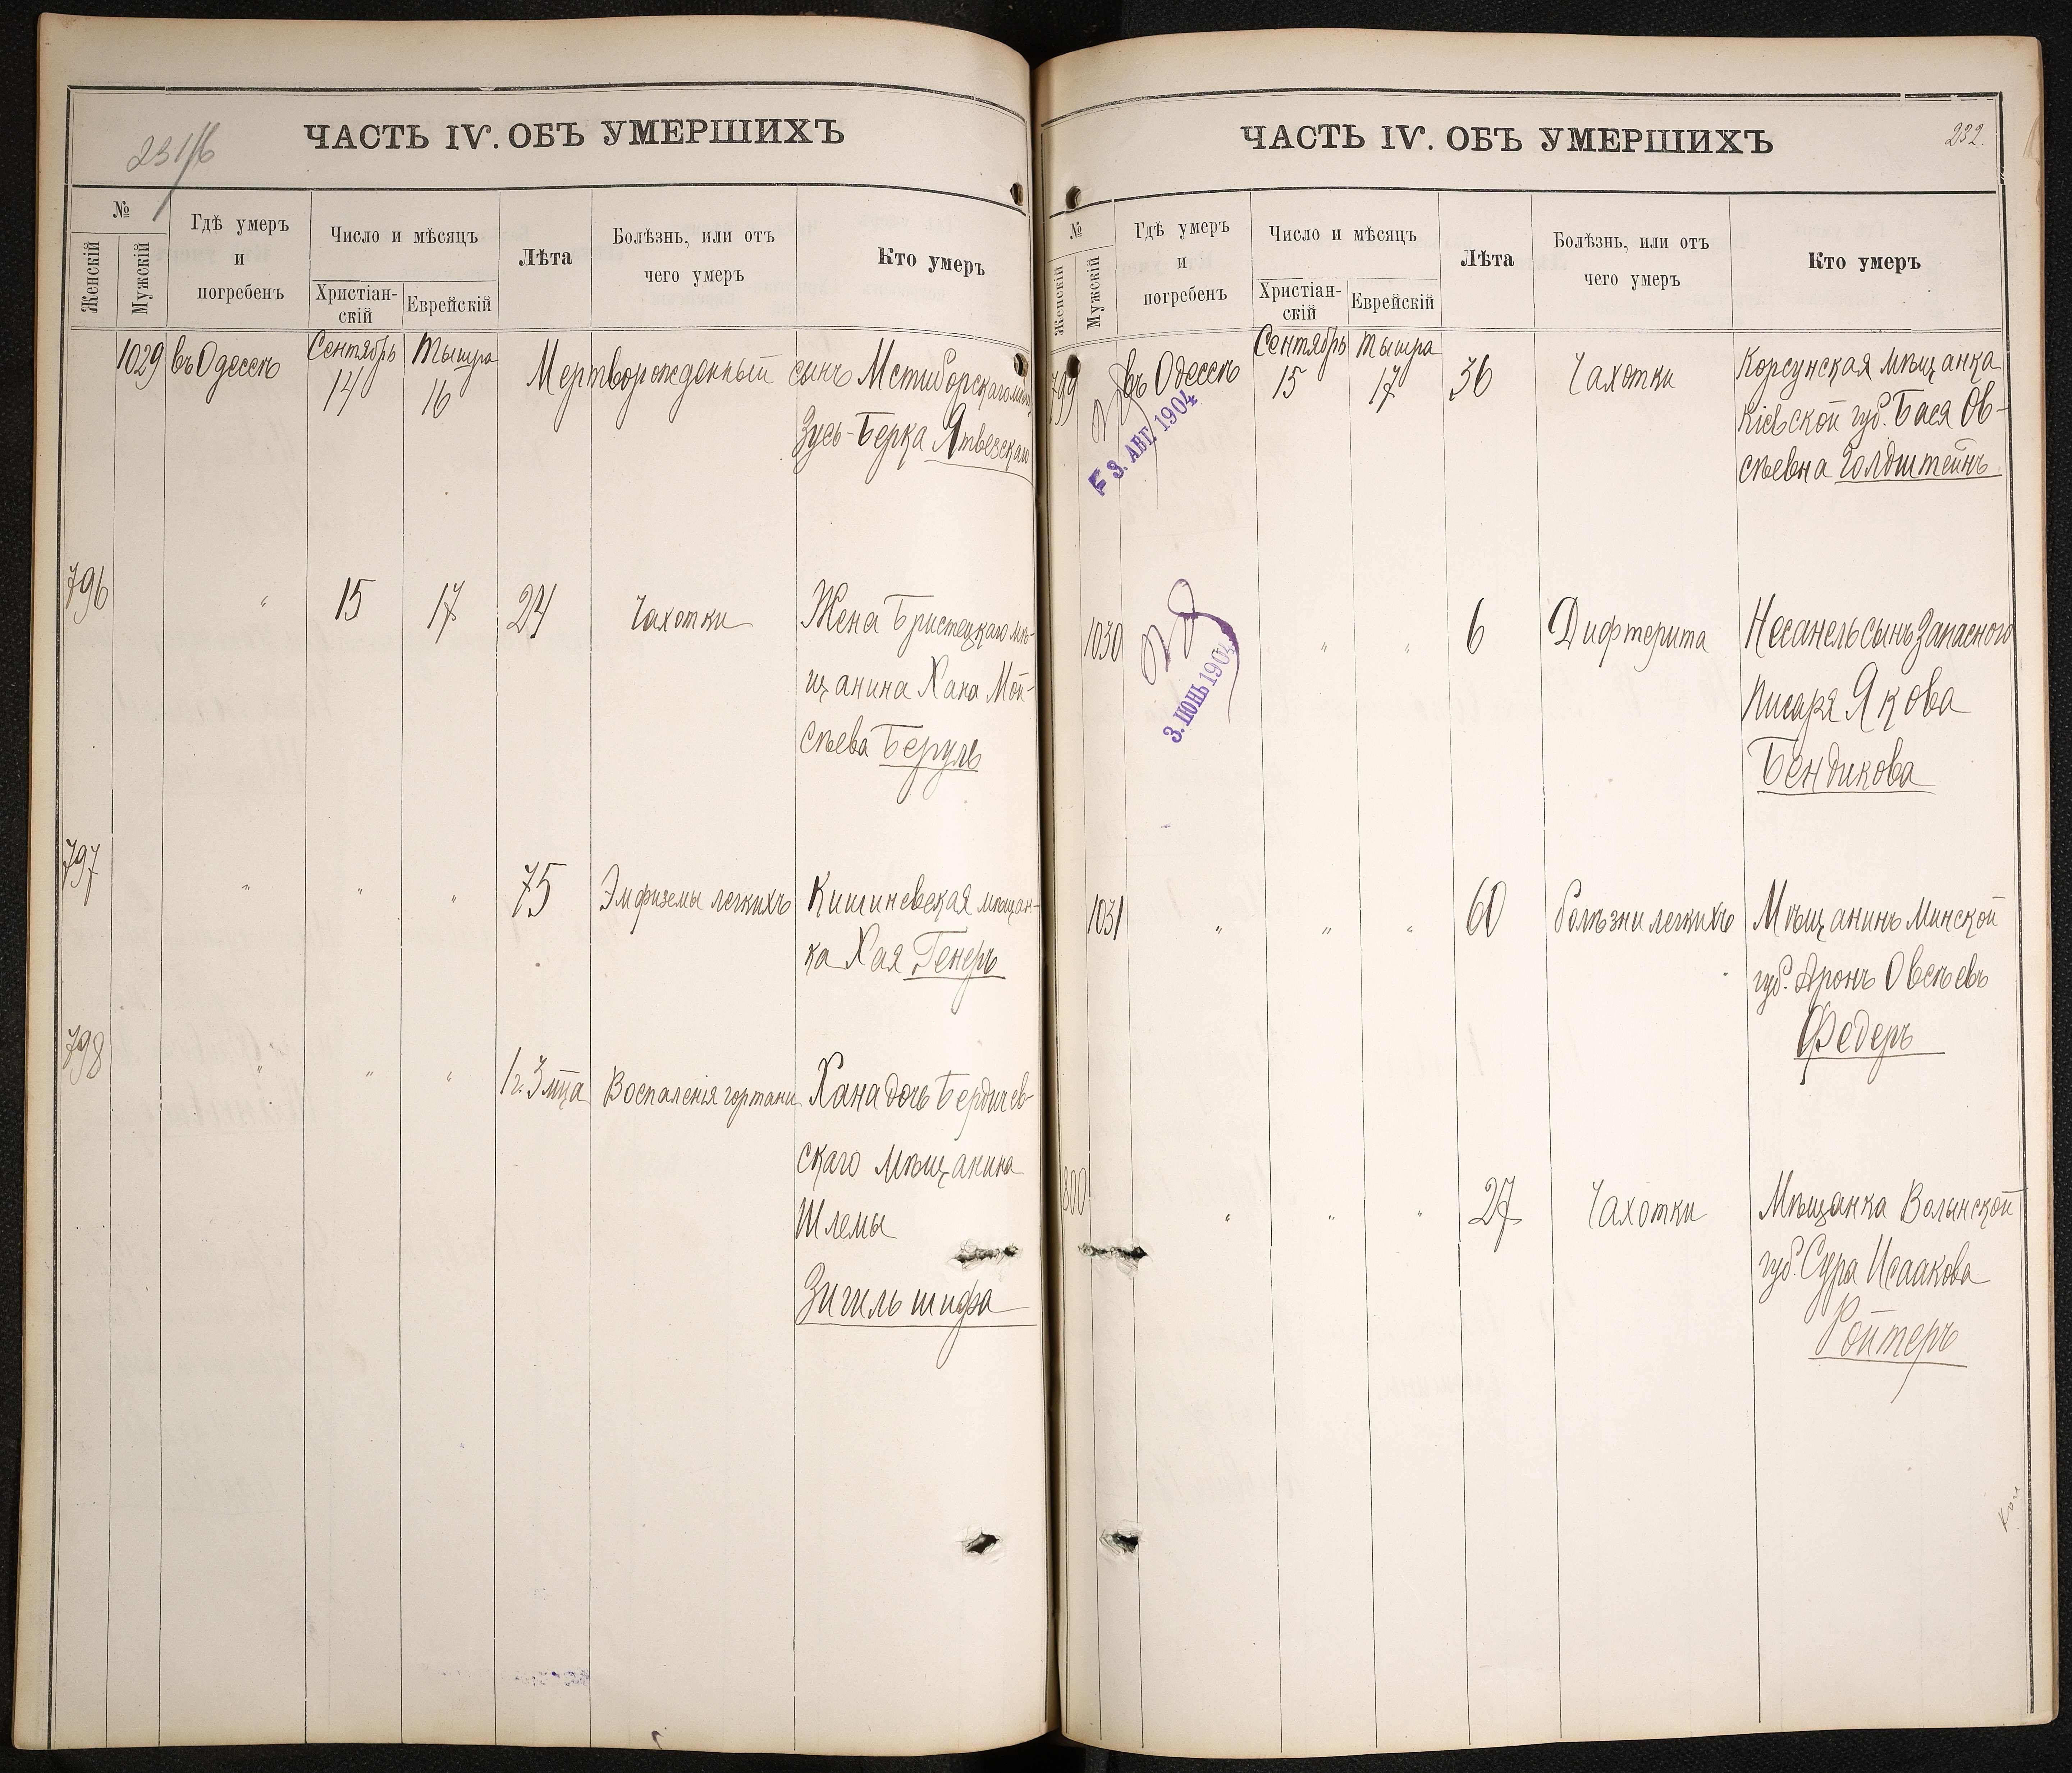 231/б
ЧАСТЬ IV. ОБЪ УМЕРШИХЪ
№
Женскій
Мужскій
Гдѣ умеръ
и
погребенъ
Число и мѣсяцъ
Христіан-
скій
Еврейскій
Лѣта
Болѣзнь, или отъ
чего умеръ
Кто умеръ
1029 въ Одессѣ Сентябрь 14 Тышра 16 Мертворожденный сынъ Мстиборскаго мѣщ
Зусь-Берка Ятвезскаго
796 " 15 17 24 Чахотки Жена Бристецкаго мѣ-
щанина Хана Мой-
сѣева Беруль
797 " " " 75 Эмфиземы легкихъ Кишиневская мѣщан-
ка Хая Генеръ
798 " " " 1 г. 3 мца Воспаленія гортани Хана дочь Бердичев-
скаго мѣщанина
Шлемы
Зигильшифа
ЧАСТЬ IV. ОБЪ УМЕРШИХЪ
232.
№
Женскій
Мужскій
Гдѣ умеръ
и
погребенъ
Число и мѣсяцъ
Христіан-
скій
Еврейскій
Лѣта
Болѣзнь, или отъ
чего умеръ
Кто умеръ
799 въ Одессѣ Сентябрь 15 Тышра 17 36 Чахотки Корсунская мѣщанка
Кіевской губ. Бася Ов-
сѣевна Голдштейнъ
3. АВГ. 1904
1030 " " 6 Дифтерита Несанель сынъ Запасного
писаря Якова
Бендикова
3. ІЮНЬ 1904
1031 " " " 60 болѣзни легкихъ Мѣщанинъ Минской
губ. Аронъ Овсѣевъ
Федеръ
800 " " " 27 Чахотки Мѣщанка Волынской
губ. Сура Исаакова
Ройтеръ